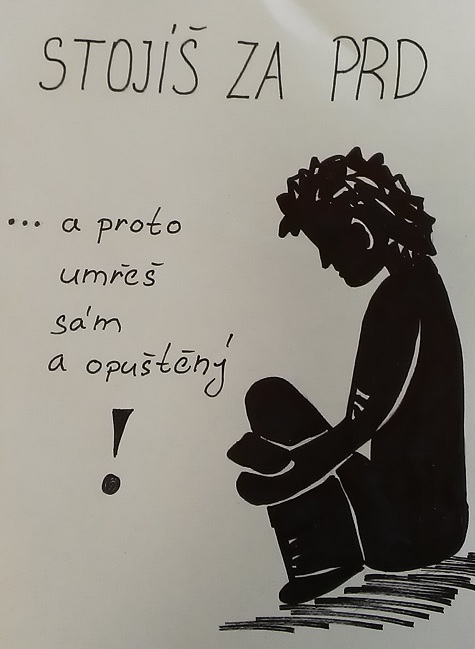 STOJÍŠ ZA PRD
... a proto
umřeš
sám
a opuštěný
!